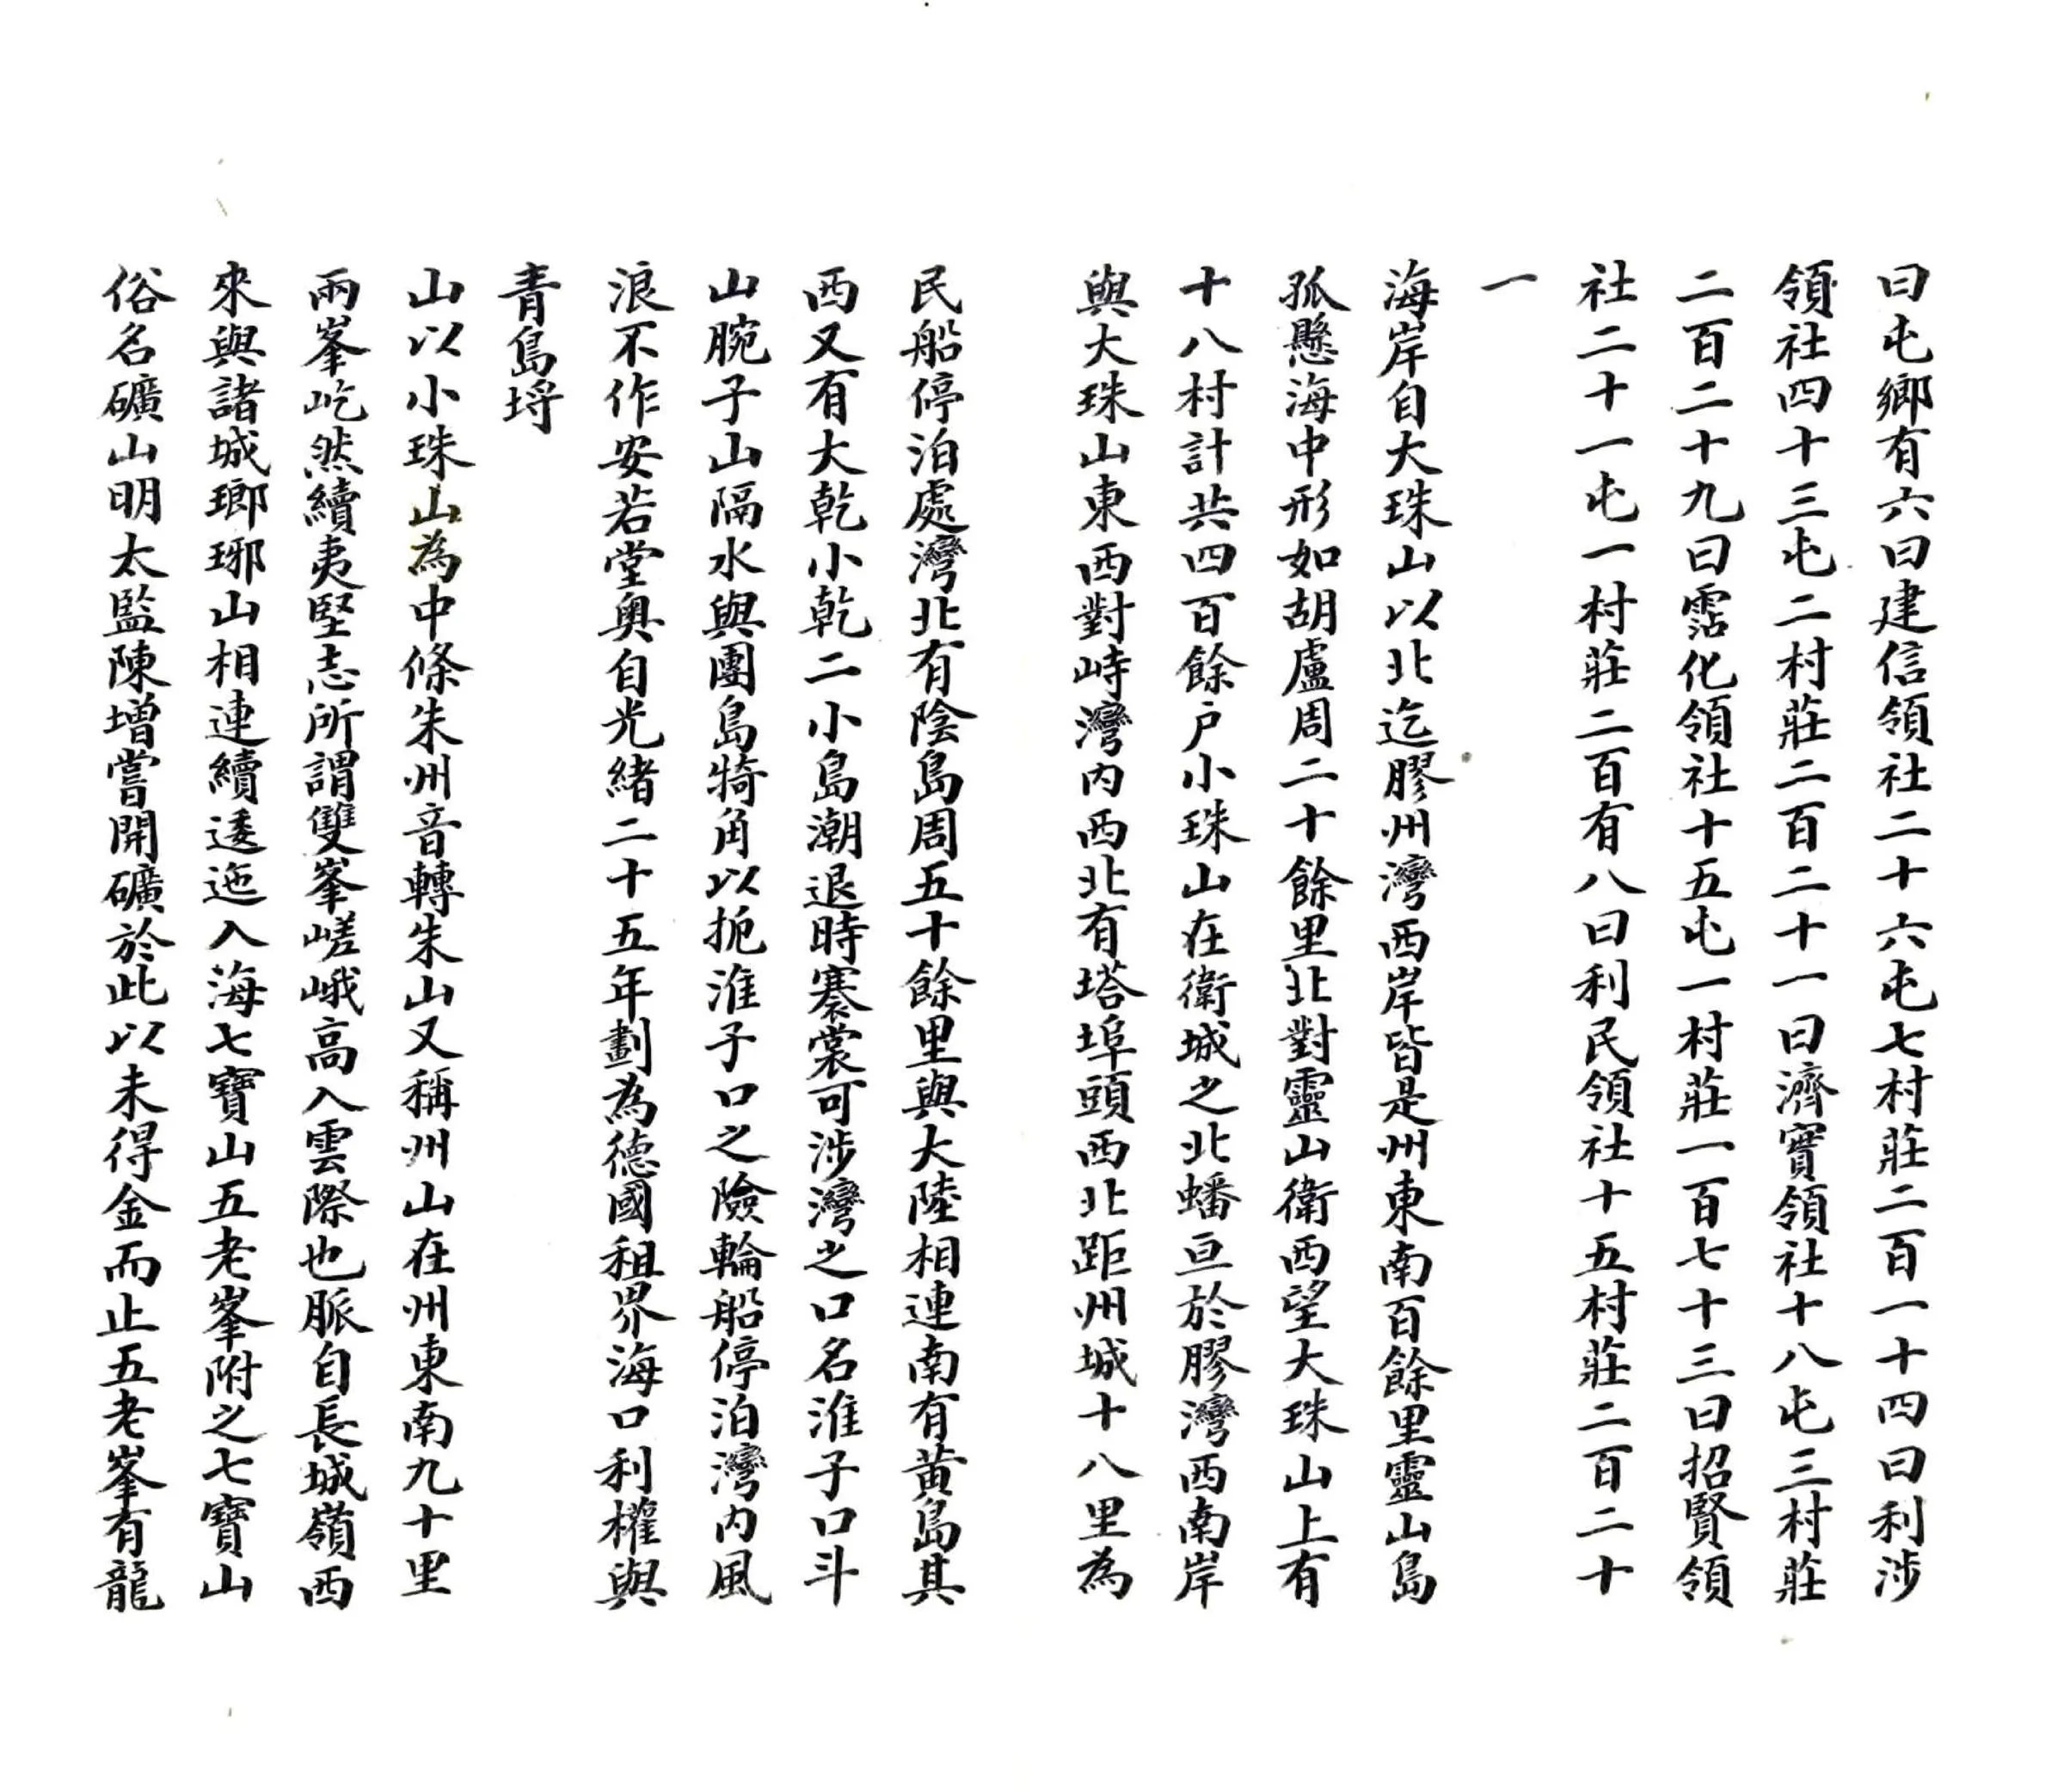 曰屯鄉有六曰建信領社二十六屯七村莊二百一十四曰利涉
領社四十三屯二村莊二百二十一曰濟實領社十八屯三村莊
二百二十九曰霑化領社十五屯一村莊一百七十三曰招賢領
社二十一屯一村莊二百有八曰利民領社十五村莊二百二十
一
海岸自大珠山以北迄膠州灣西岸皆是州東南百餘里靈山島
孤懸海中形如胡盧周二十餘里北對靈山衛西望大珠山上有
十八村計共四百餘户小珠山在衛城之北蟠亘於膠灣西南岸
與大珠山東西對峙灣内西北有塔埠頭西北距州城十八里為
民船停泊處灣北有陰島周五十餘里與大陸相連南有黃島其
西又有大乾小乾二小島潮退時褰裳可涉灣之口名淮子口斗
山腕子山隔水與團島犄角以扼淮子口之險輪船停泊灣内風
浪不作安若堂奥自光緒二十五年劃為德國租界海口利權與
青島埒
山以小珠山為中條朱州音轉朱山又稱州山在州東南九十里
兩峯屹然續夷堅志所謂雙峯嵯峨高入雲際也脈自長城嶺西
來與諸城瑯琊山相連續逶迤入海七寶山五老峯附之七寶山
俗名礦山明太監陳增嘗開礦於此以未得金而止五老峯有龍